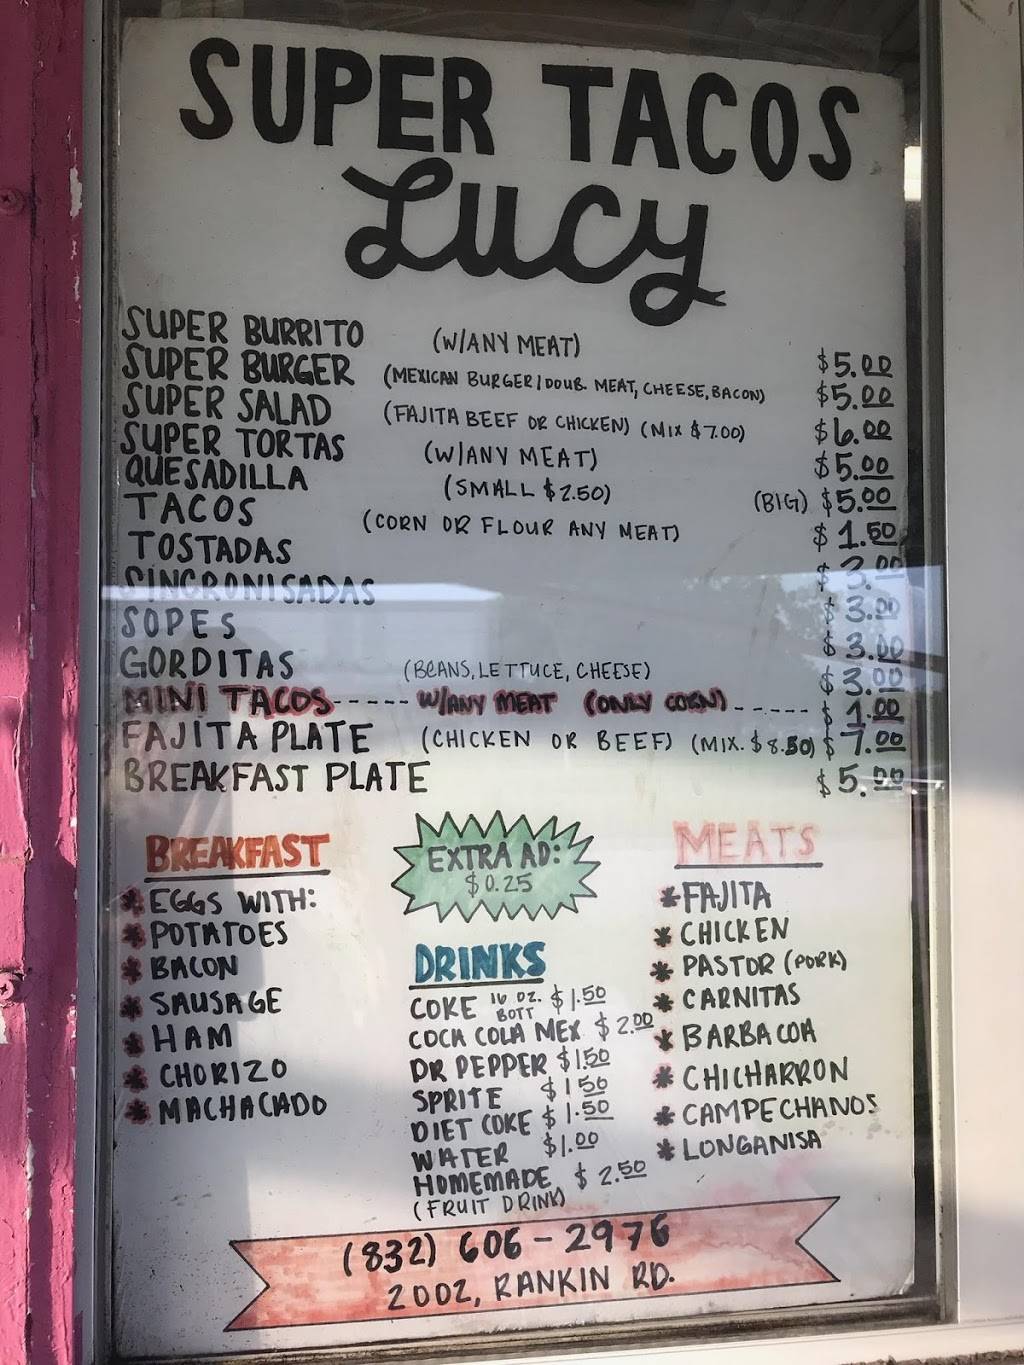 SUPER TACOS
Lucy
SUPER BURRITO (W/ANY MEAT) $5.00
SUPER BURGER (MEXICAN BURGER/DOUB. MEAT, CHEESE, BACON) $5.00
SUPER SALAD (FAJITA BEEF OR CHICKEN) (MIX $7.00) $6.00
SUPER TORTAS (W/ANY MEAT) $5.00
QUESADILLA (SMALL $2.50) (BIG) $5.00
TACOS (CORN OR FLOUR ANY MEAT) $1.50
TOSTADAS $3.00
SINCRONISADAS $3.00
SOPES $3.00
GORDITAS (BEANS, LETTUCE, CHEESE) $3.00
MINI TACOS ----- W/ANY MEAT (ONLY CORN) ----- $1.00
FAJITA PLATE (CHICKEN OR BEEF) (MIX. $8.50) $7.00
BREAKFAST PLATE $5.00
BREAKFAST
* EGGS WITH:
* POTATOES
* BACON
* SAUSAGE
* HAM
* CHORIZO
* MACHACADO
EXTRA AD:
$0.25
DRINKS
COKE 16 OZ. BOTT $1.50
COCA COLA MEX $2.00
DR PEPPER $1.50
SPRITE $1.50
DIET COKE $1.50
WATER $1.00
HOMEMADE $2.50
(FRUIT DRINK)
MEATS
* FAJITA
* CHICKEN
* PASTOR (PORK)
* CARNITAS
* BARBACOA
* CHICHARRON
* CAMPECHANOS
* LONGANISA
(832) 606-2976
2002, RANKIN RD.